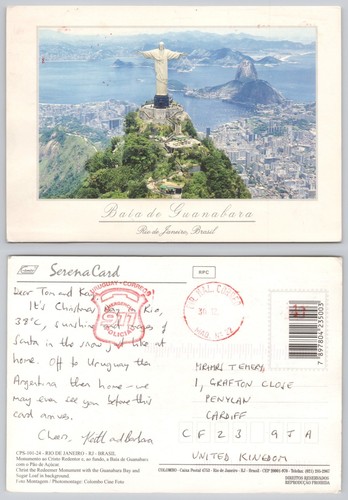 Baía de Guanabara
Rio de Janeiro, Brasil
SerenaCard
RPC
Dear Tom and
It's Christmas Day in Rio,
38°C, sunshine and images of
Santa in the snow just like at
home. Off to Uruguay then
Argentina then home - we
may even see you before this
card arrives.
Cheers, Keith and Barbara
URUGUAY - CORREOS
7 897804 235003
1, GRAFTON CLOSE
PENYLAN
CARDIFF
CF23 9JA
UNITED KINGDOM
CPS-101-24 - RIO DE JANEIRO - RJ - BRASIL
Monumento ao Cristo Redentor e, ao fundo, a Baía de Guanabara
com o Pão de Açúcar.
Christ the Redeemer Monument with the Guanabara Bay and
Sugar Loaf in background.
Foto Montagem / Photomontage: Colombo Cine Foto
DIREITOS RESERVADOS
REPRODUÇÃO PROIBIDA